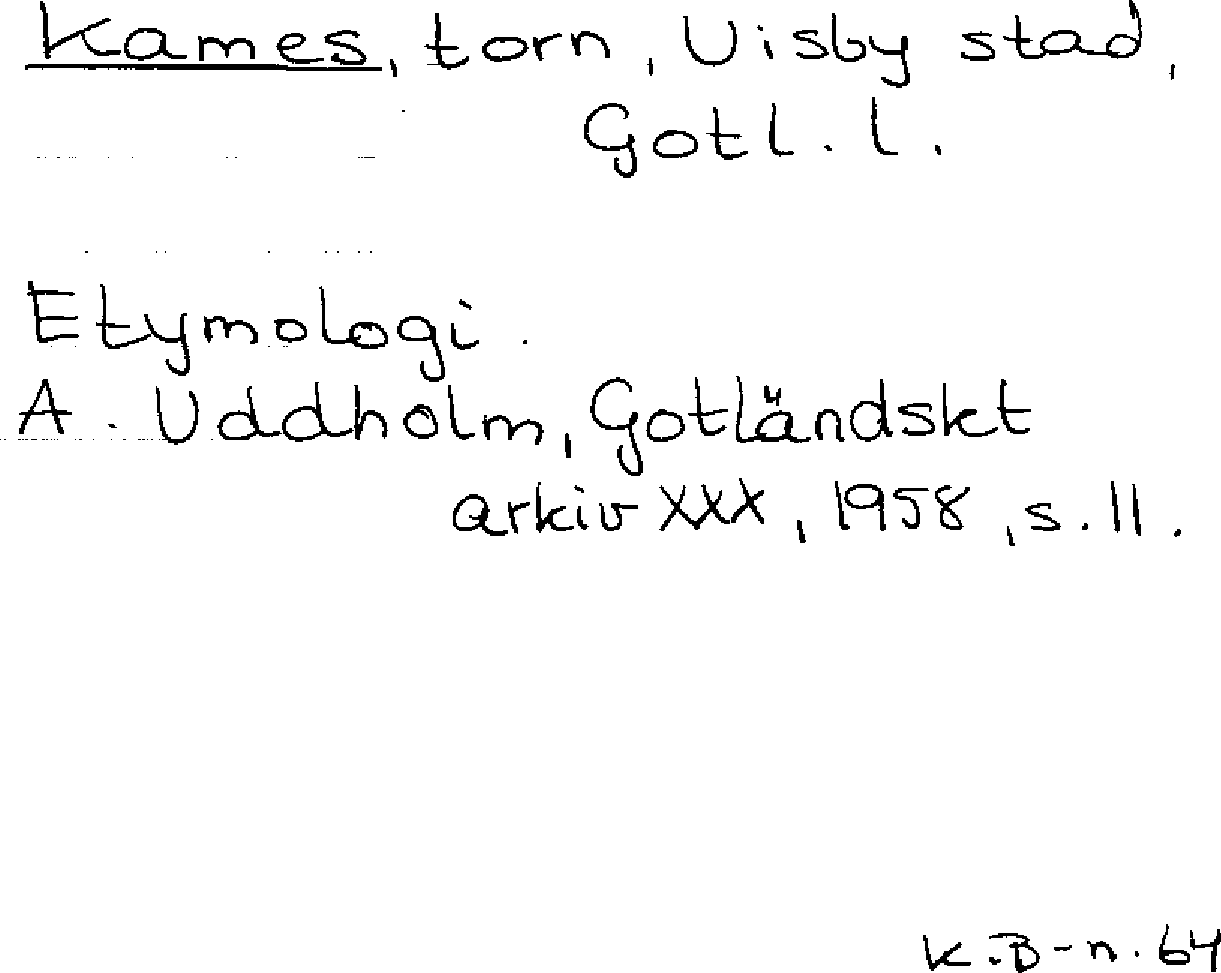 Kames, torn, Visby stad,
Gotl. l.
Etymologi.
A. Uddholm, Gotländskt
arkiv XXX, 1958, s. 11.
K.B-n. 64